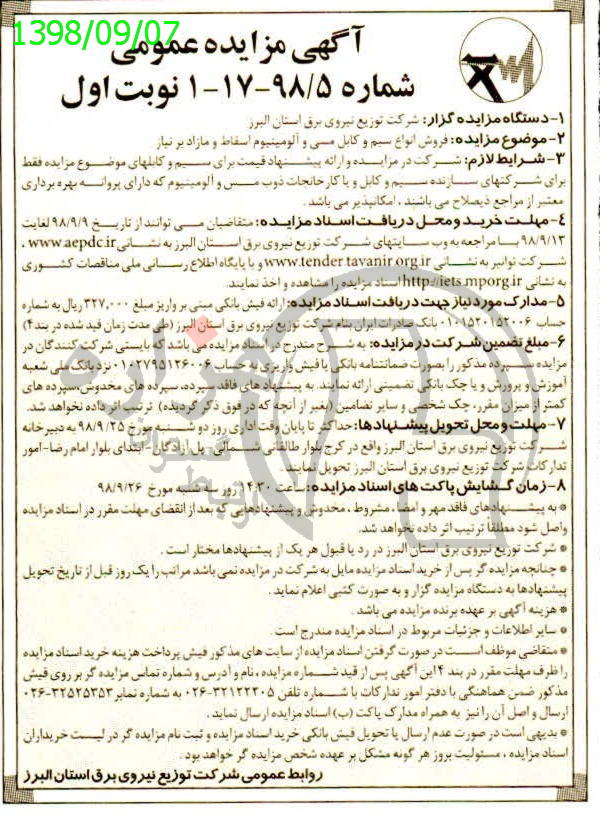 1398/09/07
آگهی مزایده عمومی
شماره ۹۸/۵-۱۷-۱ نوبت اول
۱-دستگاه مزایده گزار: شرکت توزیع نیروی برق استان البرز
۲-موضوع مزایده: فروش انواع سیم و کابل مسی و آلومینیوم اسقاط و مازاد بر نیاز
۳-شرایط لازم: شرکت در مزایده و ارائه پیشنهاد قیمت برای سیم و کابلهای موضوع مزایده فقط
برای شرکتهای سازنده سیم و کابل و یا کارخانجات ذوب مس و آلومینیوم که دارای پروانه بهره برداری
معتبر از مراجع ذیصلاح می باشند، امکانپذیر می باشد.
۴-مهلت خرید و محل دریافت اسناد مزایده: متقاضیان می توانند از تاریخ ۹۸/۹/۹ لغایت
۹۸/۹/۱۳ با مراجعه به وب سایتهای شرکت توزیع نیروی برق استان البرز به نشانی www.aepdc.ir ،
شرکت توانیر به نشانی www.tender.tavanir.org.ir و یا پایگاه اطلاع رسانی ملی مناقصات کشوری
به نشانی http://iets.mporg.ir اسناد مزایده را مشاهده و اخذ نمایند.
۵-مدارک مورد نیاز جهت دریافت اسناد مزایده: ارائه فیش بانکی مبنی بر واریز مبلغ ۳۲۷,۰۰۰ ریال به شماره
حساب ۰۱۰۱۵۲۰۱۵۲۰۰۶ بانک صادرات ایران بنام شرکت توزیع نیروی برق استان البرز (طی مدت زمان قید شده در بند ۴)
۶-مبلغ تضمین شرکت در مزایده: به شرح مندرج در اسناد مزایده می باشد که بایستی شرکت کنندگان در
مزایده سپرده مذکور را بصورت ضمانتنامه بانکی یا فیش واریزی به حساب ۰۱۰۲۷۹۵۱۲۶۰۰۶ نزد بانک ملی شعبه
آموزش و پرورش و یا چک بانکی تضمینی ارائه نمایند. به پیشنهاد های فاقد سپرده، سپرده های مخدوش، سپرده های
کمتر از میزان مقرر، چک شخصی و سایر تضامین (بغیر از آنچه که در فوق ذکر گردیده) ترتیب اثر داده نخواهد شد.
۷-مهلت و محل تحویل پیشنهادها: حداکثر تا پایان وقت اداری روز دو شنبه مورخ ۹۸/۹/۲۵ به دبیرخانه
شرکت توزیع نیروی برق استان البرز واقع در کرج بلوار طالقانی شمالی- پل آزادگان-ابتدای بلوار امام رضا-امور
تدارکات شرکت توزیع نیروی برق استان البرز تحویل نمایند.
۸-زمان گشایش پاکت های اسناد مزایده: ساعت ۱۴:۳۰ روز سه شنبه مورخ ۹۸/۹/۲۶
* به پیشنهادهای فاقد مهر و امضا، مشروط، مخدوش و پیشنهادهایی که بعد از انقضای مهلت مقرر در اسناد مزایده
واصل شود مطلقاً ترتیب اثر داده نخواهد شد.
* شرکت توزیع نیروی برق استان البرز در رد یا قبول هر یک از پیشنهادها مختار است.
* چنانچه مزایده گر پس از خرید اسناد مزایده مایل به شرکت در مزایده نمی باشد مراتب را یک روز قبل از تاریخ تحویل
پیشنهادها به دستگاه مزایده گزار و به صورت کتبی اعلام نماید.
* هزینه آگهی بر عهده برنده مزایده می باشد.
* سایر اطلاعات و جزئیات مربوط در اسناد مزایده مندرج است.
* متقاضی موظف است در صورت گرفتن اسناد مزایده از سایت های مذکور فیش پرداخت هزینه خرید اسناد مزایده
را ظرف مهلت مقرر در بند ۴ این آگهی پس از قید شماره مزایده، نام و آدرس و شماره تماس مزایده گر بر روی فیش
مذکور ضمن هماهنگی با دفتر امور تدارکات با شماره تلفن ۳۲۱۲۲۲۰۵-۰۲۶ به شماره نمابر ۳۲۵۲۵۳۵۳-۰۲۶
ارسال و اصل آن را نیز به همراه مدارک پاکت (ب) اسناد مزایده ارسال نماید.
* بدیهی است در صورت عدم ارسال یا تحویل فیش بانکی خرید اسناد مزایده و ثبت نام مزایده گر در لیست خریداران
اسناد مزایده، مسئولیت بروز هر گونه مشکل بر عهده شخص مزایده گر خواهد بود.
روابط عمومی شرکت توزیع نیروی برق استان البرز